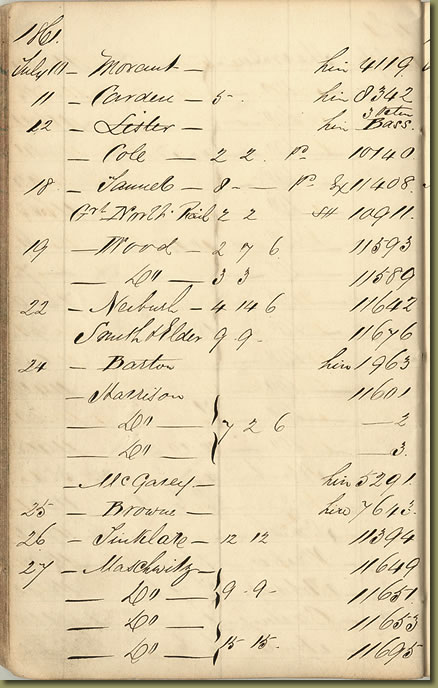 1861.
July 11 — Morant — hire 4119
11 — Carden — 5 - hire 8342
12 — Lister — hire Bass.
— Cole — 2 2 . pd 10140
18 — 8 — — pd Ex 11408.
Grt North. Rail 2 2 SH 10911.
19 — Wood — 2 7 6 11593
— Do — 3 3 11589
22 — — 4 14 6 11642
Smith & Elder 9 9 - 11676
24 — Barton hire 1963
— Harrison 11601
— Do — 7 2 6 — 2
— Do — — 3.
— McGarey — hire 5291
25 — Browne — hire 7643
26 — — 12 12 11394
27 — Maschwitz — 11649
— Do — 9 - 9 - 11651
— Do — 11653
— Do — 15 15. 11695